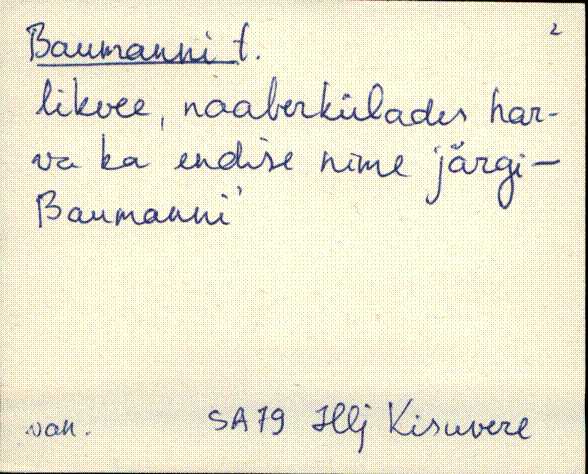 2
Baumanni t.
likvee, naaberkülades har-
va ka endise nime järgi -
Baumanni'
van. SA 79 Hlj Kisuvere